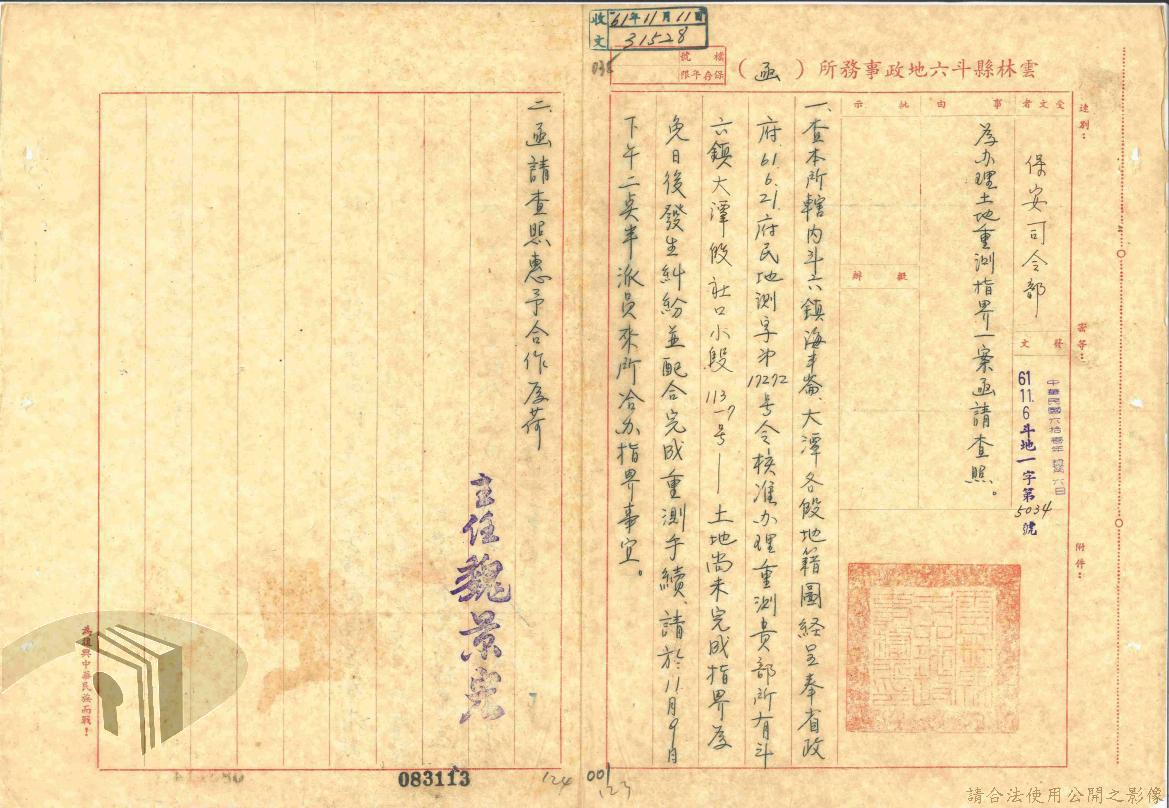 收文
61年11月11日
31528
038
檔號
保存年限
雲林縣斗六地政事務所(函)
速別：
密等：
附件：
受文者
保安司令部
發文
中華民國六拾壹年拾壹月六日
61 11. 6 斗地一字第5034號
事由
為办理土地重測指界一案函請查照。
批示
擬辦
一、查本所轄内斗六鎮海丰崙、大潭各段地籍圖経呈奉省政
府61.6.21.府民地測字第17272号令核准办理重測貴部所有斗
六鎮大潭段社口小段113-7号—土地尚未完成指界為
免日後發生糾紛並配合完成重測手續、請於11月9日
下午二点半派员來所洽办指界事宜。
二、函請查照惠予合作為荷
主任魏景宏
為復興中華民族而戰！
083113
124
001
123
請合法使用公開之影像